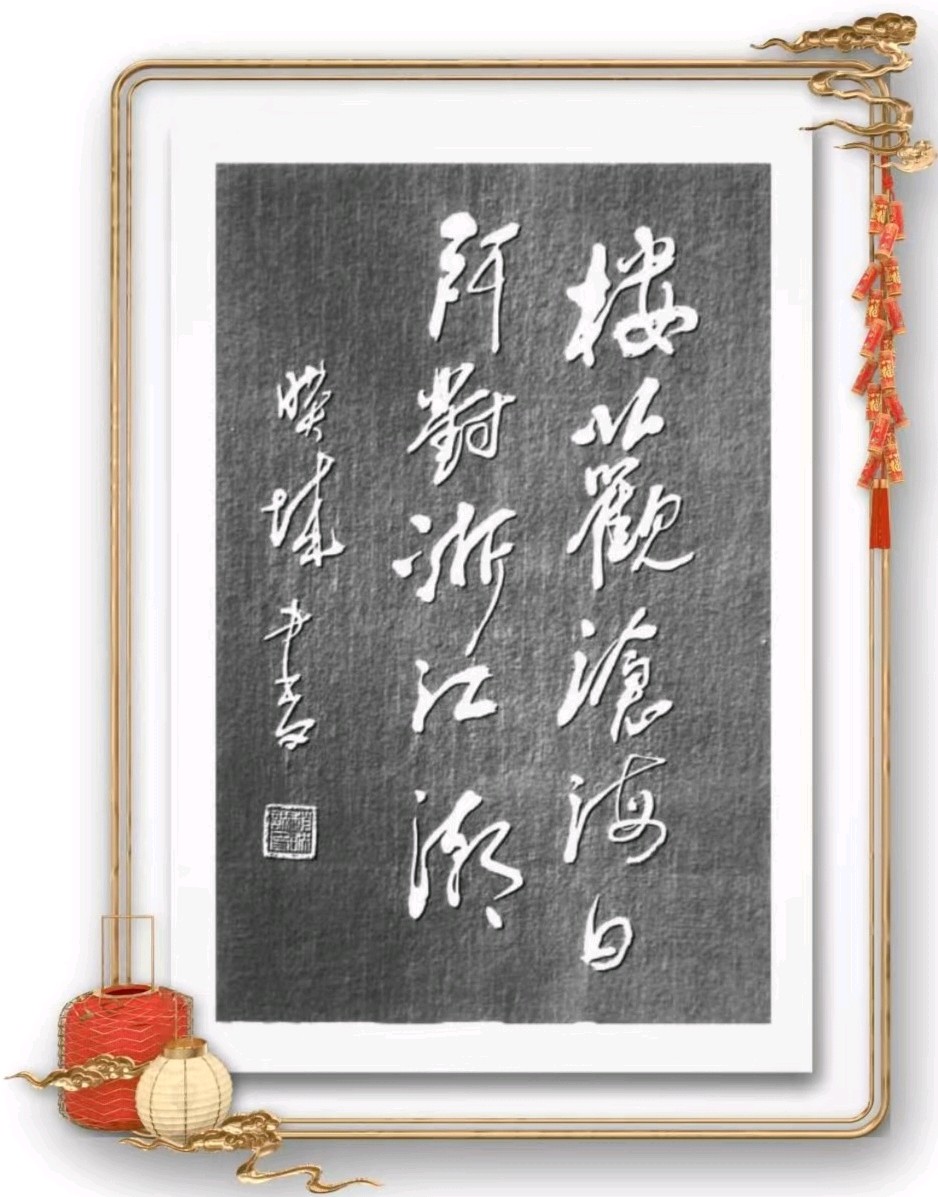 樓觀滄海日
門對浙江潮
暎城書